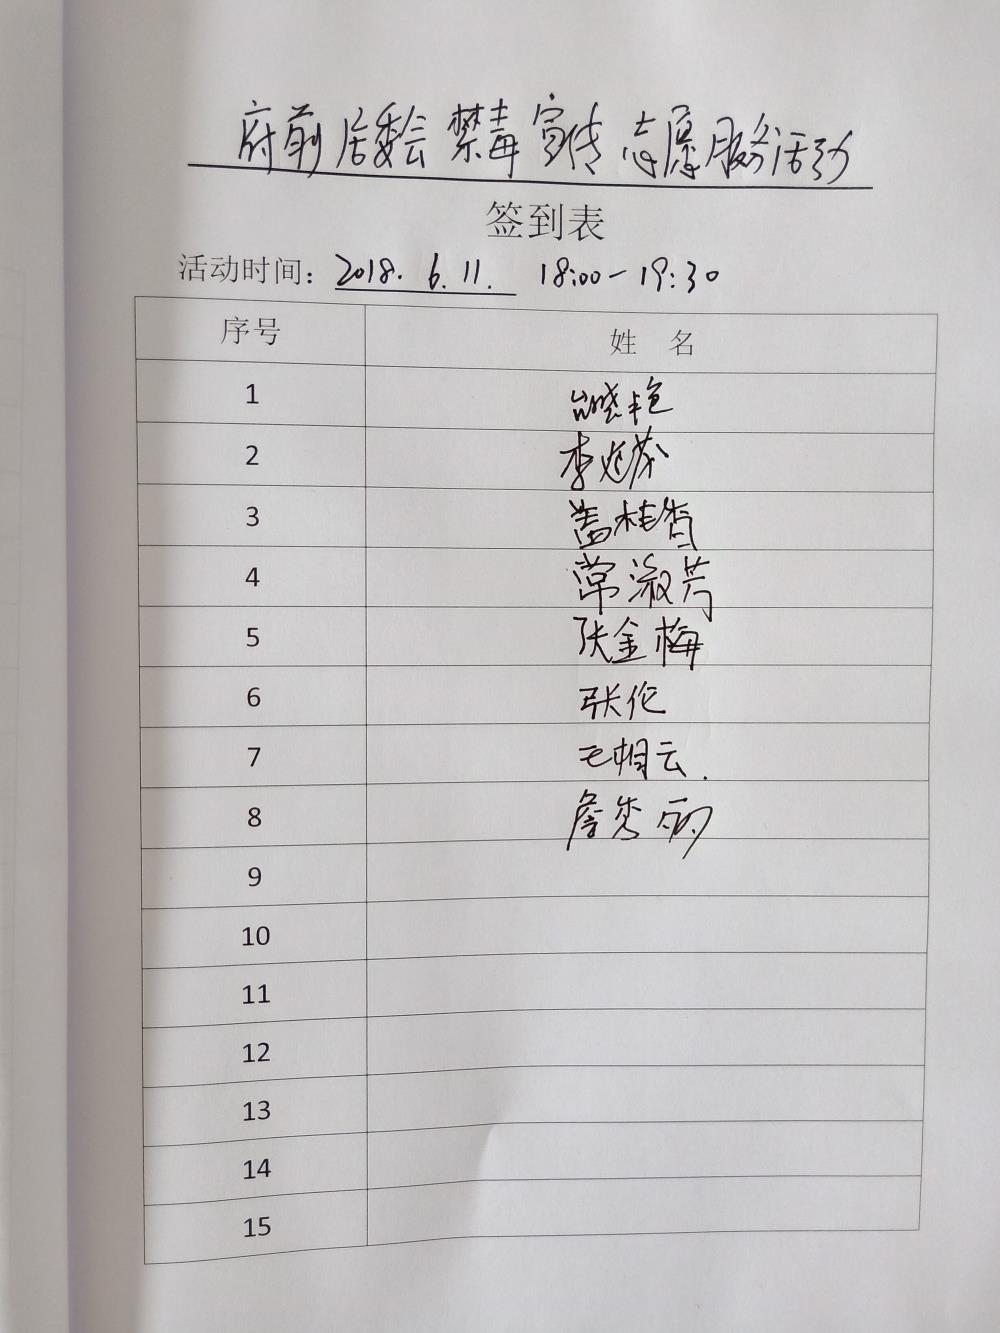 府前居委会禁毒宣传志愿服务活动
签到表
活动时间：2018.6.11. 18:00-19:30
序号 姓 名
1 晓艳
2 李延芬
3 盖桂香
4 常淑芳
5 张金梅
6 张伦
7 毛相云.
8 詹秀丽
9
10
11
12
13
14
15